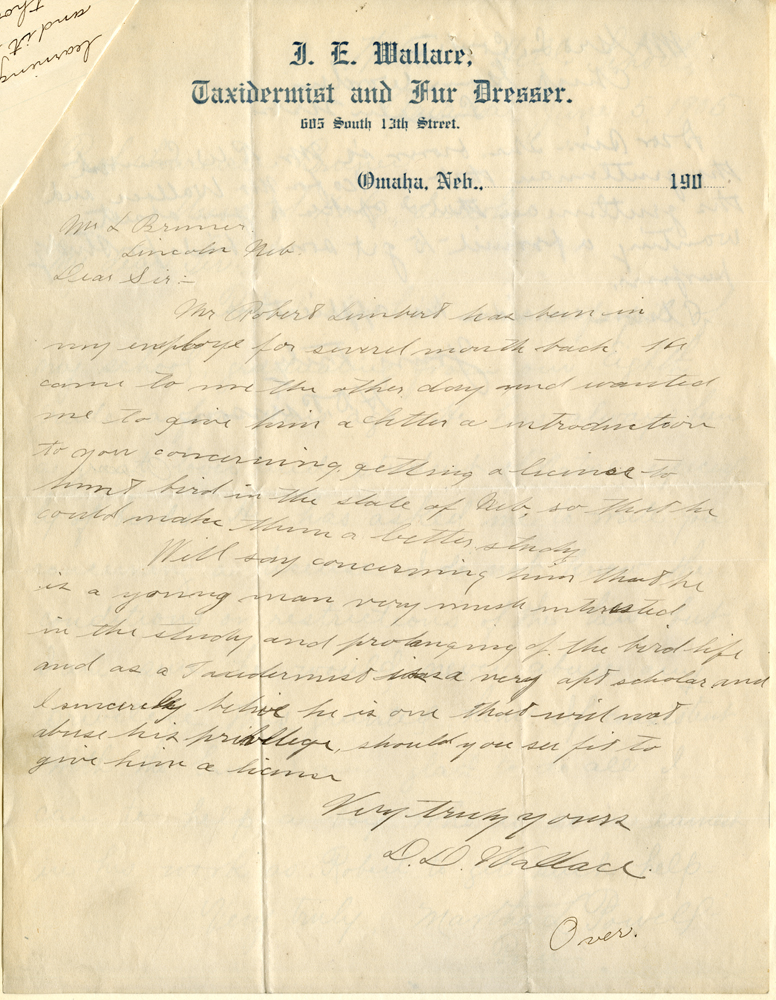 learning
and it
J. E. Wallace,
Taxidermist and Fur Dresser.
605 South 13th Street.
Omaha, Neb., 190
Mr L Bruner.
Lincoln Neb.
Dear Sir:-
Mr Robert Limbert has been in
my employe for severel month back. He
came to me the other day and wanted
me to give him a letter a introduction
to you concerning getting a licinse to
hunt bird in the state of Neb, so that he
could make them a better study
Will say concerning him that he
is a young man very mush intersted
in the study and prolonging of the bird life
and as a Taxidermist is a very apt scholar and
I sincerely belive he is one that will not
abuse his privllege, should you see fit to
give him a license
Very truly yours
D. D. Wallace.
Over.